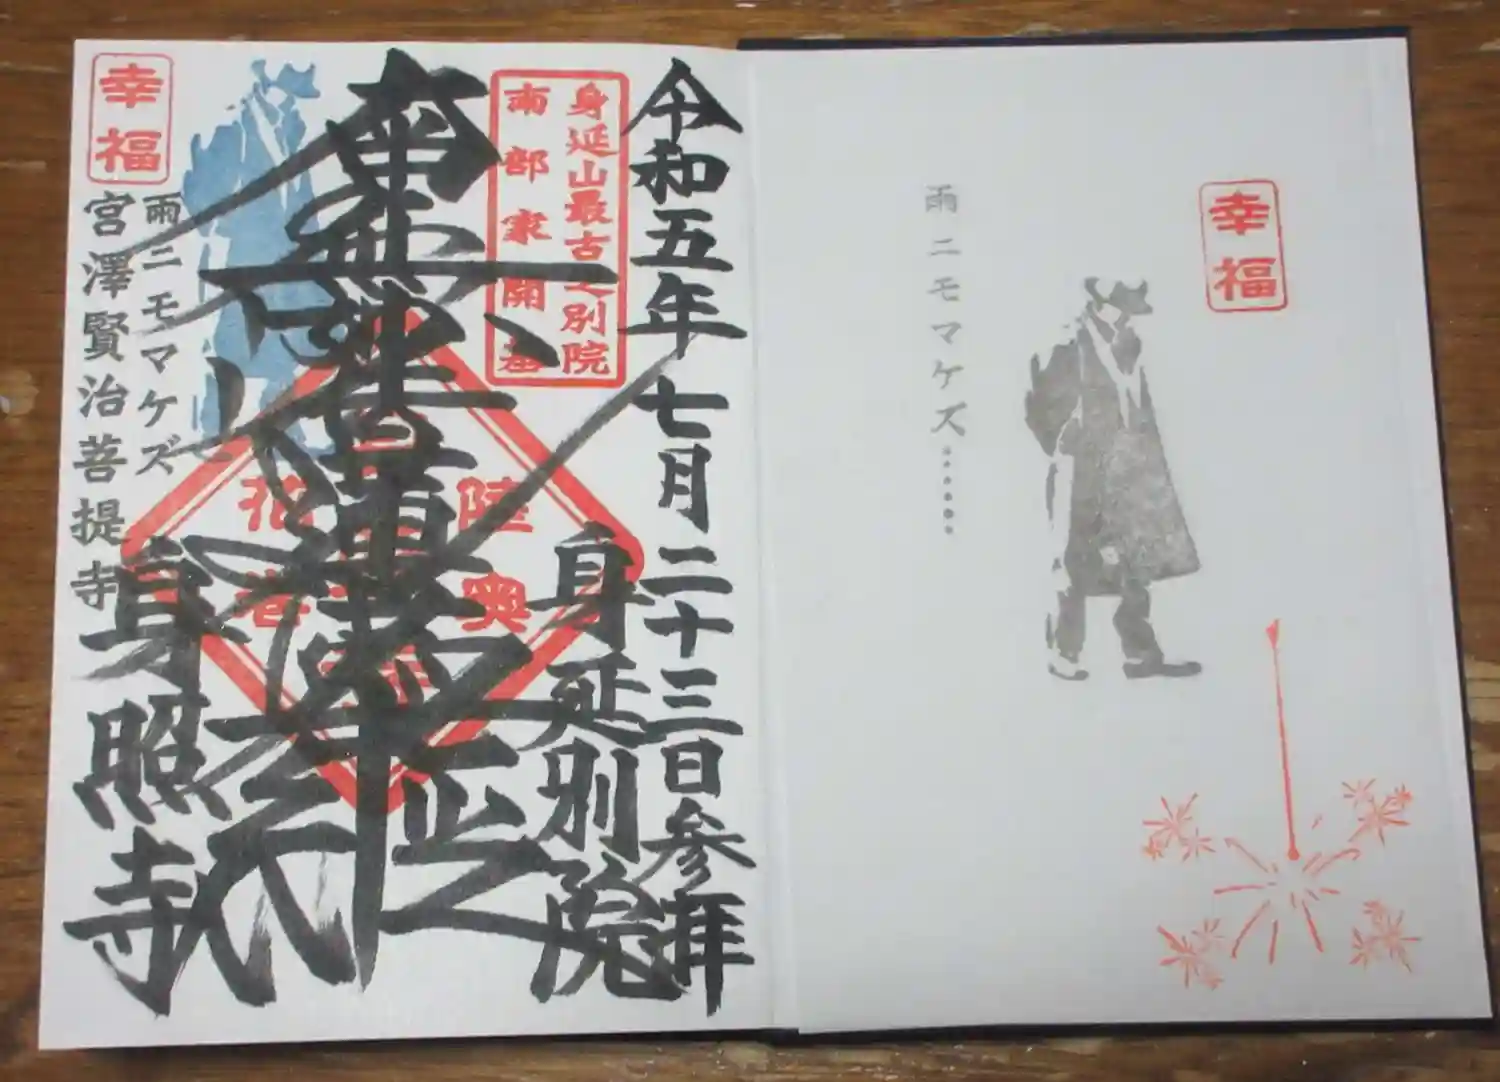 幸福
雨ニモマケズ……
令和五年七月二十三日参拝
身延別院
身延山最古之別院
南部家開基
南無妙法蓮華經
陸奥
花巻
身照寺
雨ニモマケズ
宮澤賢治菩提寺
幸福